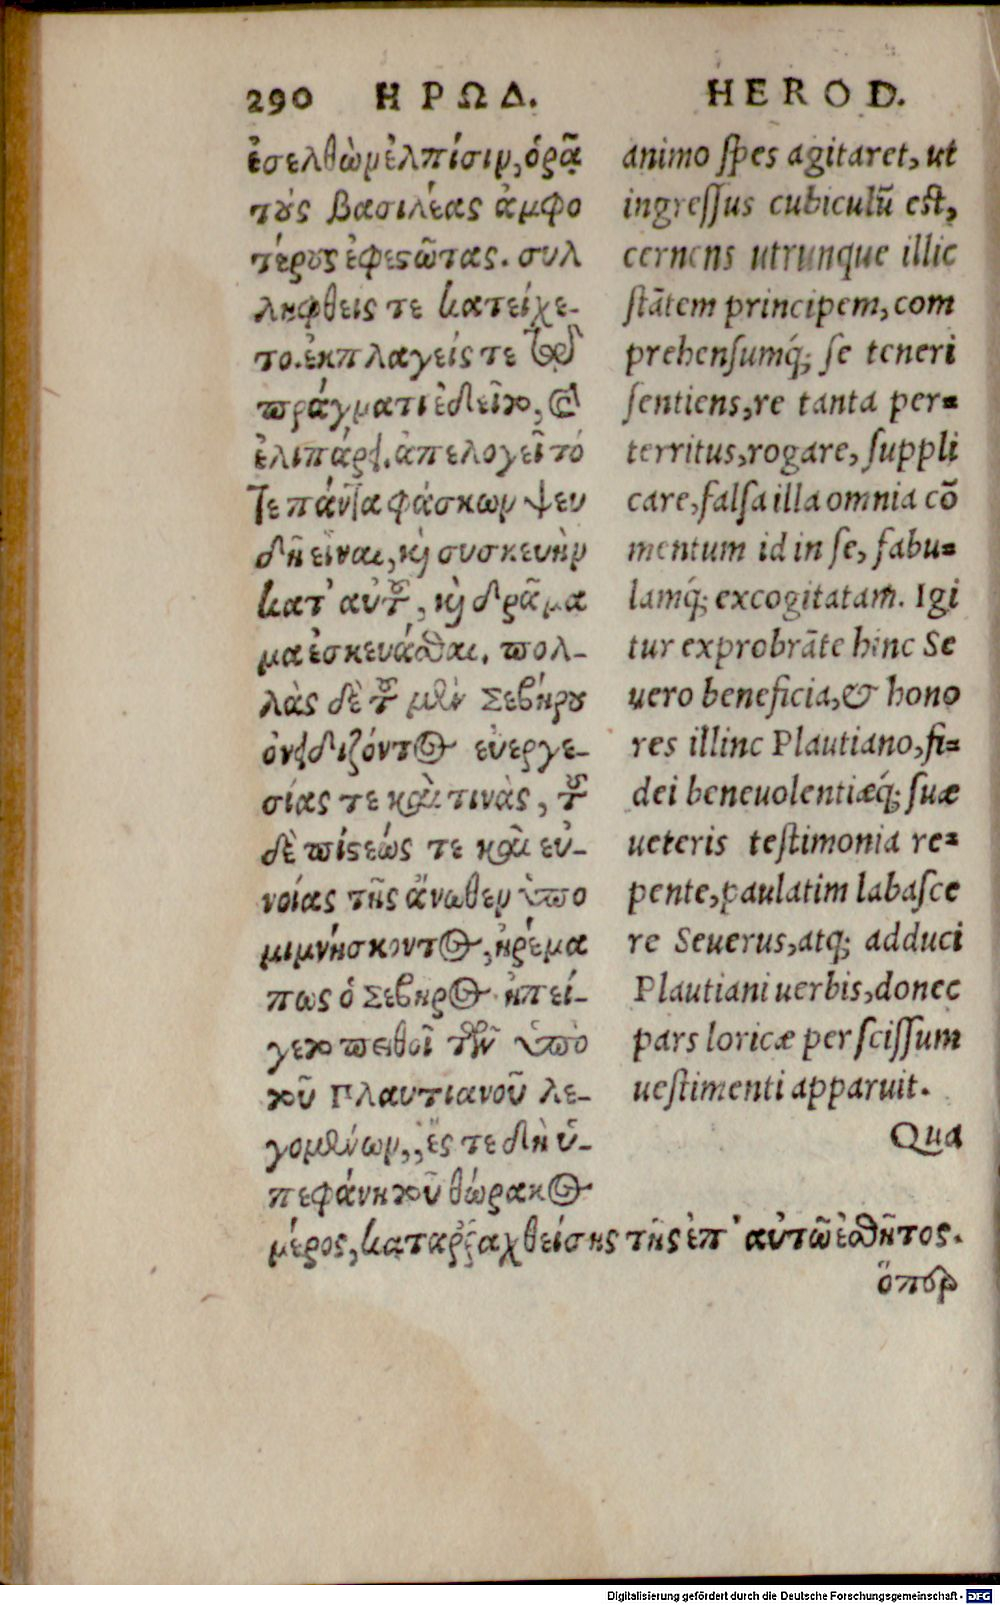 290 ΗΡΩΔ.
ἐσελθὼν ἐλπίσιν, ὁρᾷ
τοὺς βασιλέας ἀμφο
τέρους ἐφεστῶτας. συλ
ληφθεὶς τε κατείχε-
το. ἐκπλαγείς τε τῷ
πράγματι ἐδεῖτο, καὶ
ἐλιπάρει. ἀπελογεῖτό
τε πάντα φάσκων ψευ
δῆ εἶναι, καὶ συσκευὴν
κατ' αὐτοῦ, καὶ δρᾶμα
μα ἐσκευάσθαι. πολ-
λὰς δὲ τοῦ μὲν Σεβήρου
ὀνειδιζόντος εὐεργε-
σίας τε καὶ τινὰς, τοῦ
δὲ πίστεώς τε καὶ εὐ-
νοίας τῆς ἄνωθεν ὑπο
μιμνήσκοντος, ἠρέμα
πως ὁ Σεβῆρος ἠπεί-
γετο πείθοῖ τῶν ὑπὸ
τοῦ Πλαυτιανοῦ λε-
γομένων, ἕς τε δὴ ὑ-
πεφάνη τοῦ θώρακος
μέρος, καταρξαχθείσης τῆς ἐπ' αὐτῶ ἐσθῆτος.
ὅπερ
HEROD.
animo spes agitaret, ut
ingressus cubiculũ est,
cernens utrunque illic
stãtem principem, com
prehensumq́; se teneri
sentiens, re tanta per=
territus, rogare, suppli
care, falsa illa omnia cõ
mentum id in se, fabu=
lamq́; excogitatam. Igi
tur exprobrãte hinc Se
uero beneficia, & hono
res illinc Plautiano, fi=
dei beneuolentiæq́; suæ
ueteris testimonia re=
pente, paulatim labasce
re Seuerus, atq; adduci
Plautiani uerbis, donec
pars loricæ per scissum
uestimenti apparuit.
Qua
Digitalisierung gefördert durch die Deutsche Forschungsgemeinschaft - DFG